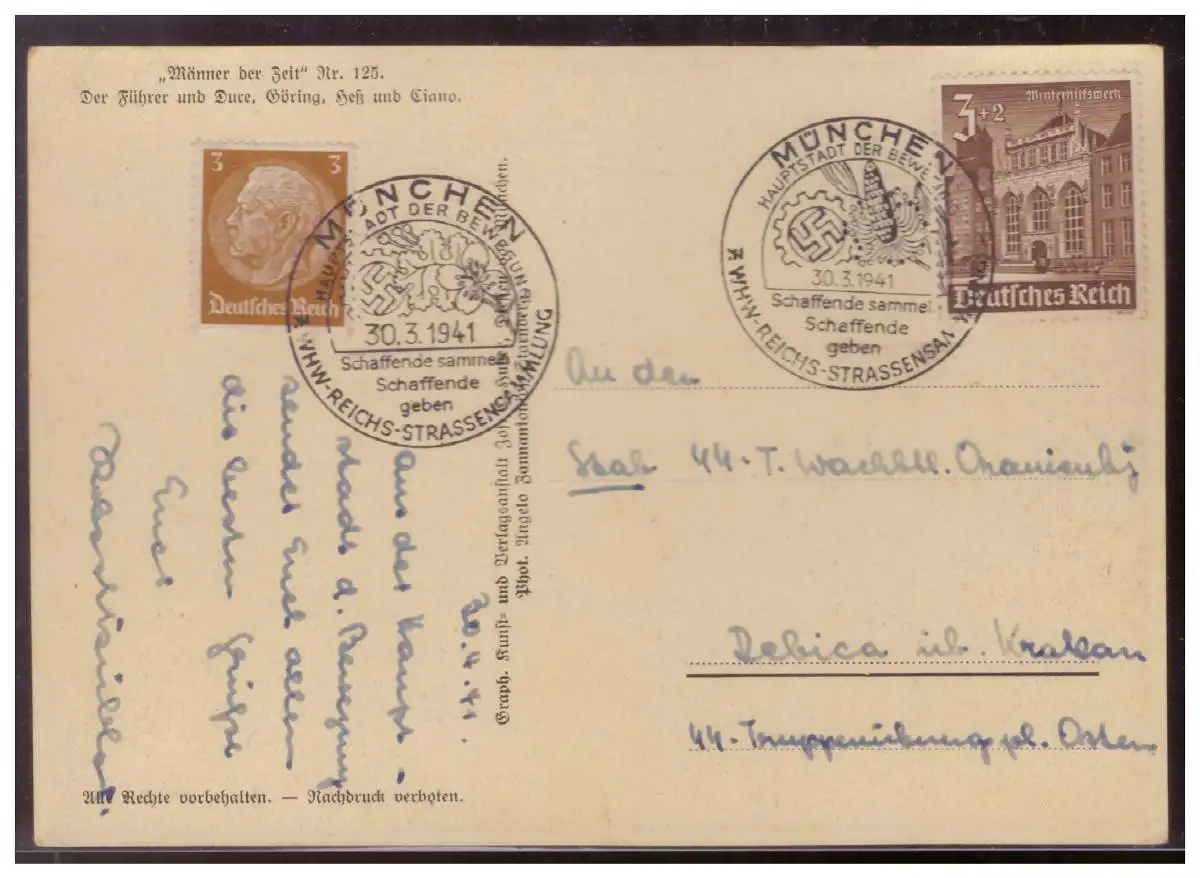 „Männer der Zeit“ Nr. 125.
Der Führer und Duce, Göring, Heß und Ciano.
3 3
Deutsches Reich
MÜNCHEN
HAUPTSTADT DER BEWEGUNG
30.3.1941
Schaffende sammeln
Schaffende
geben
WHW-REICHS-STRASSENSAMMLUNG
3+2
Winterhilfswerk
Deutsches Reich
MÜNCHEN
HAUPTSTADT DER BEWEGUNG
30.3.1941
Schaffende sammel
Schaffende
geben
WHW-REICHS-STRASSENSA
Graph. Kunst- und Verlagsanstalt München.
Phot. Angelo Starnberg
30. 4. 41.
Aus der Haupt-
stadt d. Bewegung
sendet Euch allen
die besten Grüße
Euer
An den
Stab 44-T. Wachbtl. Oranienbg
Debica üb. Krakau
44-Truppenübung pl. Osten
Alle Rechte vorbehalten. — Nachdruck verboten.